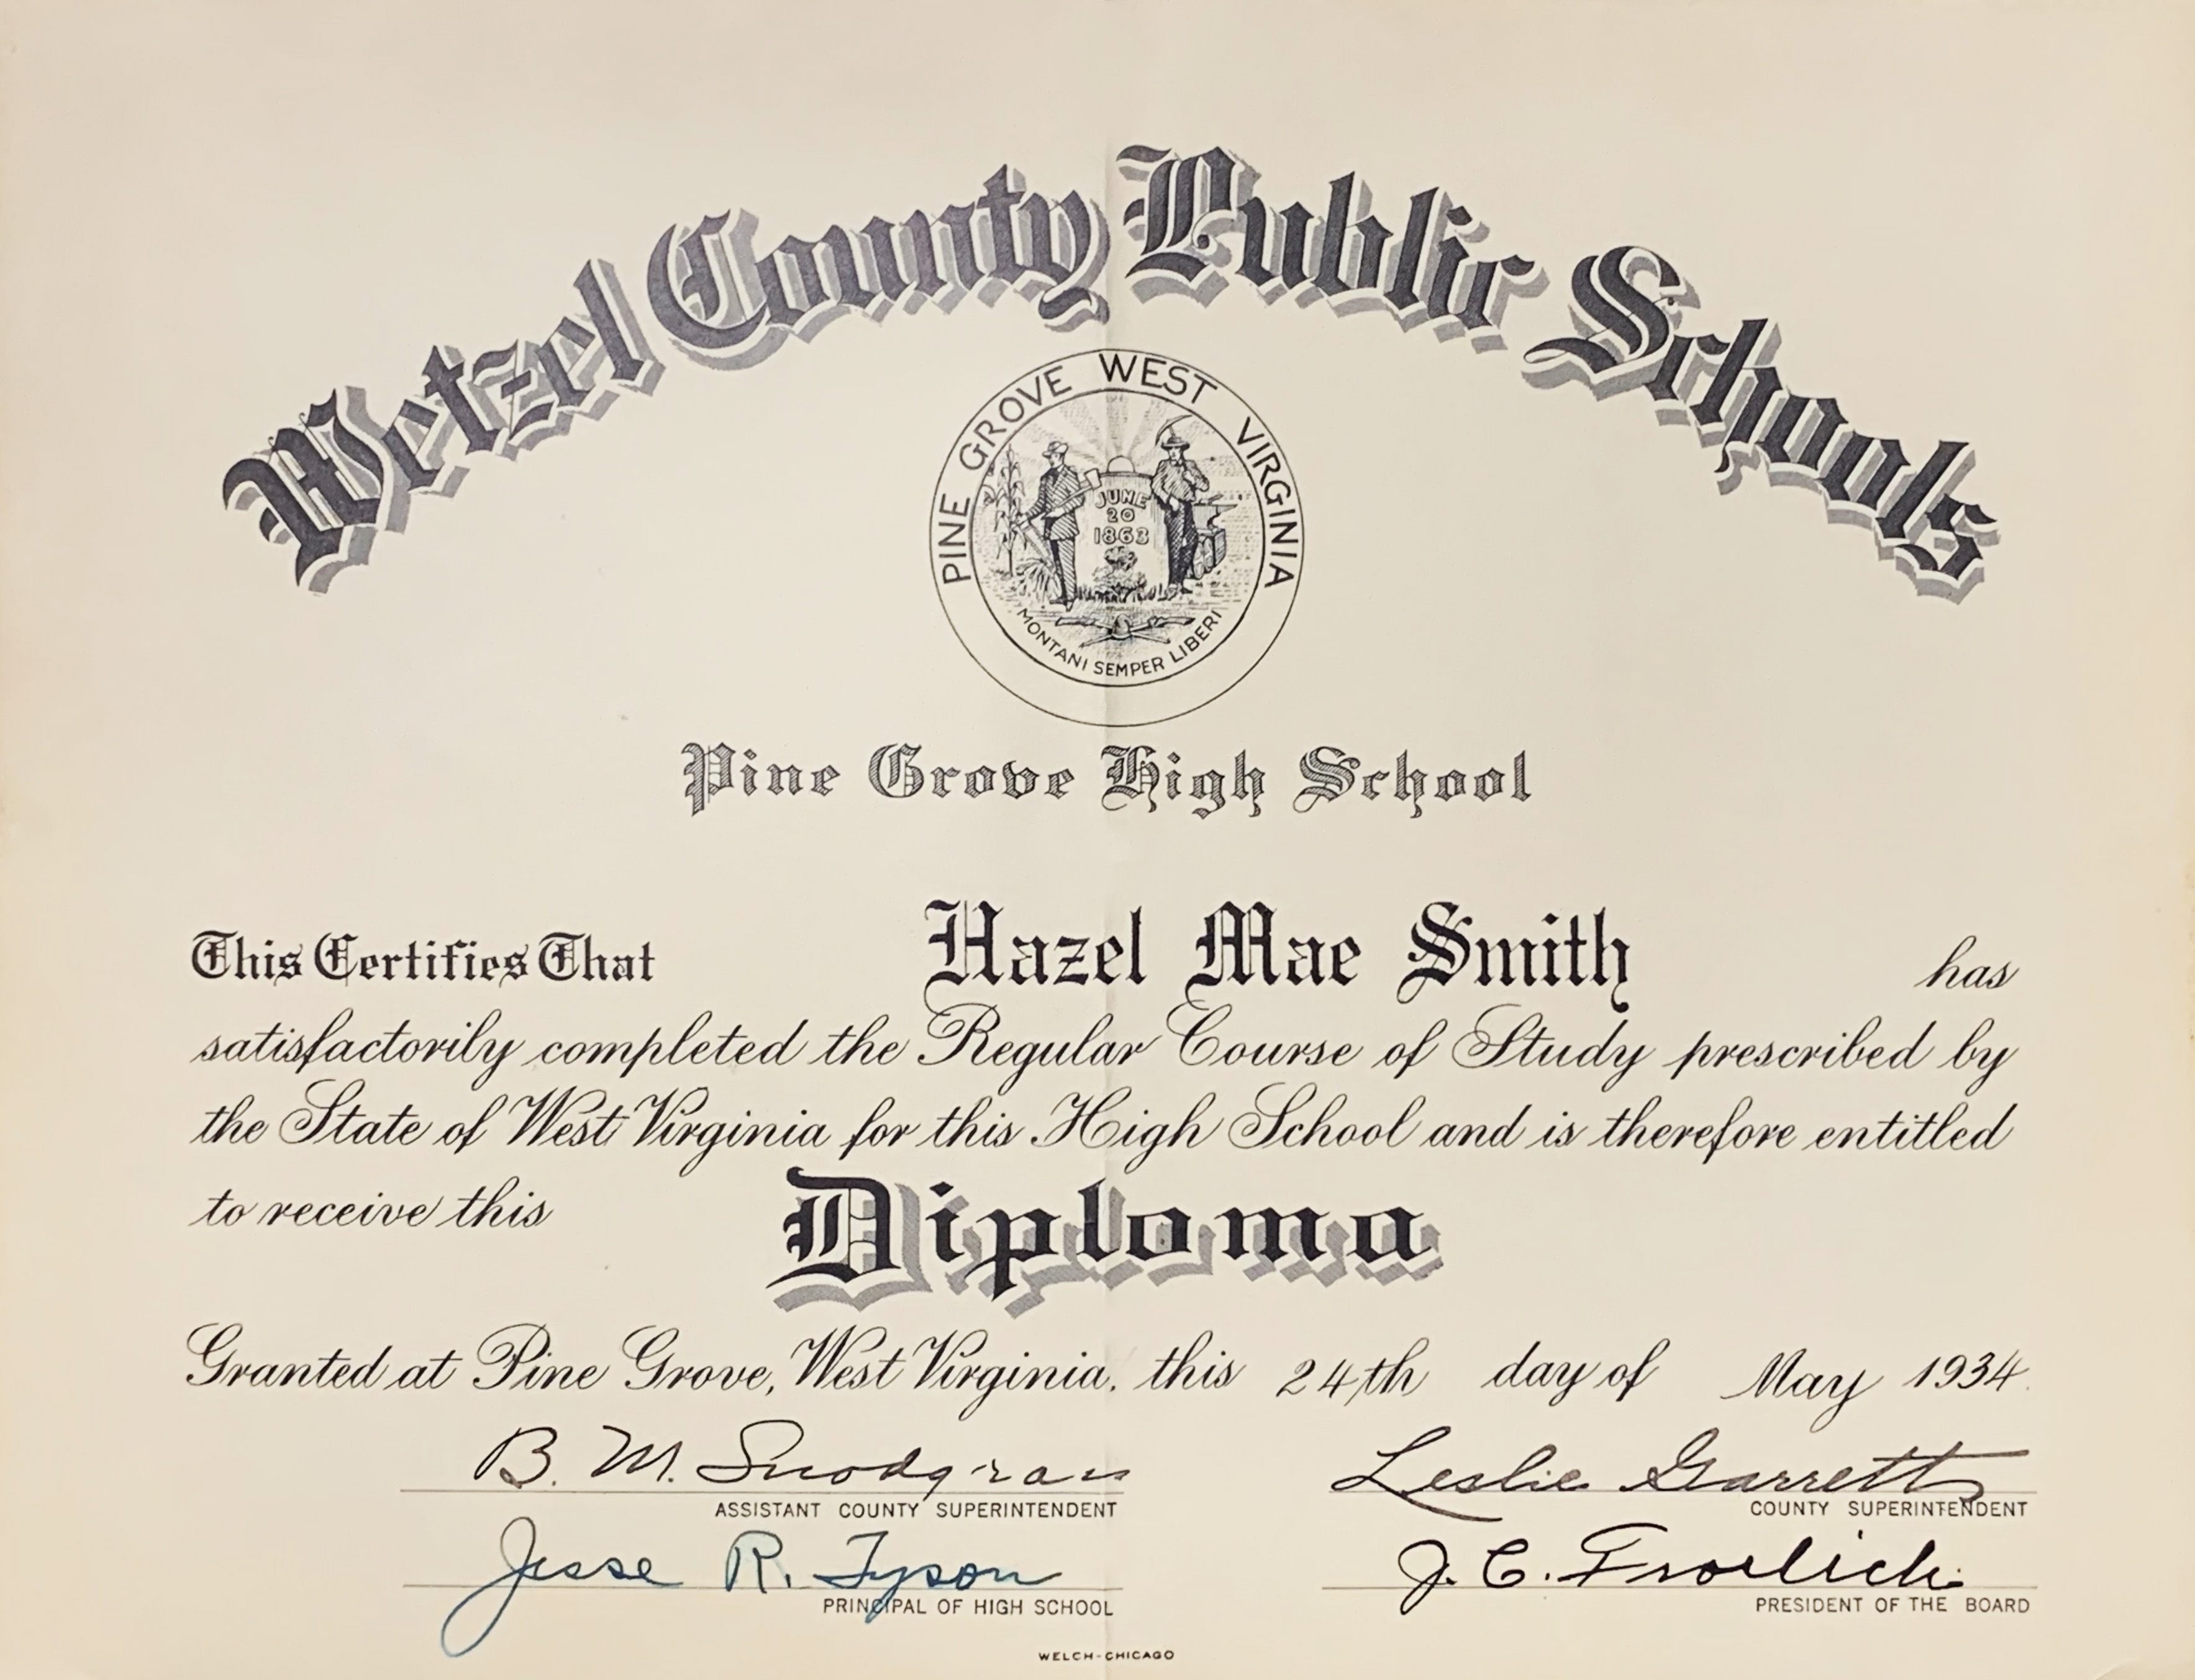 Wetzel County Public Schools
PINE GROVE WEST VIRGINIA
JUNE
20
1863
MONTANI SEMPER LIBERI
Pine Grove High School
This Certifies That Hazel Mae Smith has
satisfactorily completed the Regular Course of Study prescribed by
the State of West Virginia for this High School and is therefore entitled
to receive this Diploma
Granted at Pine Grove, West Virginia, this 24th day of May 1934.
B. M. Snodgrass Leslie Garrett
ASSISTANT COUNTY SUPERINTENDENT COUNTY SUPERINTENDENT
Jesse R. Tyson J. C. Froelich
PRINCIPAL OF HIGH SCHOOL PRESIDENT OF THE BOARD
WELCH-CHICAGO